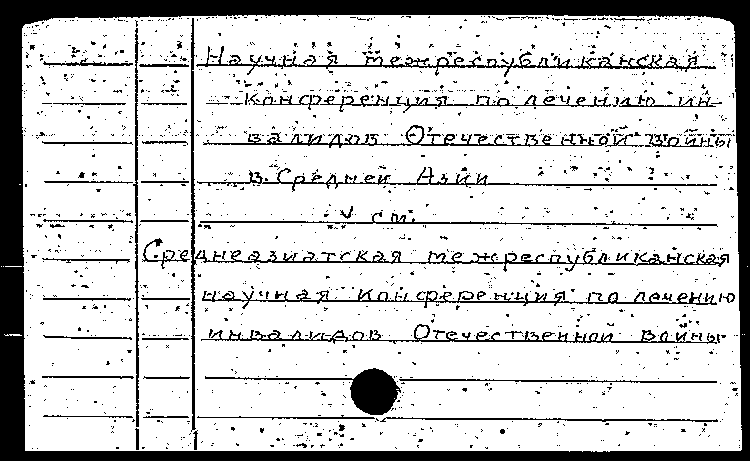 Научная межреспубликанская
конференция по лечению ин-
валидов Отечественной войны
в Средней Азии
см.
Среднеазиатская межреспубликанская
научная конференция по лечению
инвалидов Отечественной войны